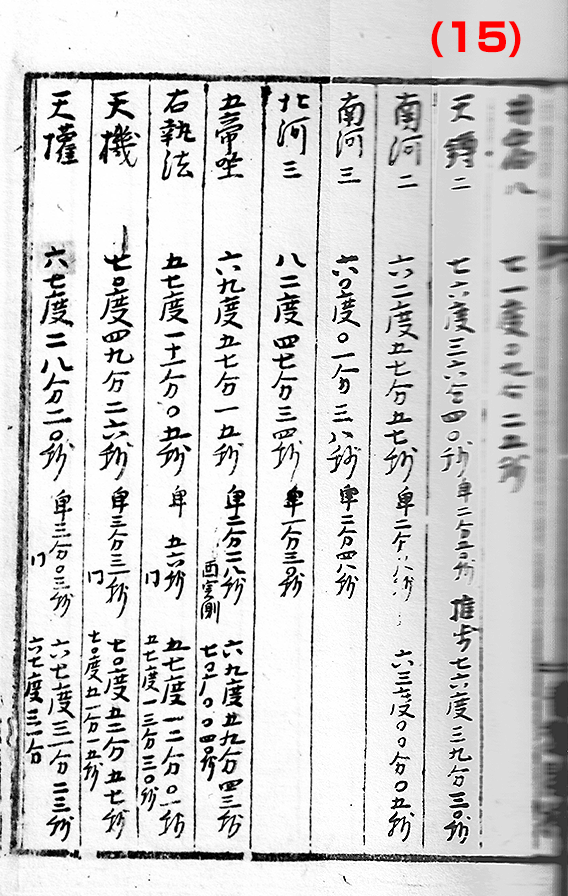 (15)
七一度〇九分二五秒
天罇二 七六度三六分四〇秒 卑二分五〇秒 推步七六度三九分三〇秒
南河二 六二度五七分五七秒 卑二分八秒 六三度〇〇分〇五秒
南河三 六〇度〇一分三八秒 卑二分四八秒
北河三 八二度四七分三四秒 卑一分三〇秒
五帝坐 六九度五七分一五秒 卑二分二八秒 六九度五九分四三秒
西实測 七〇度〇〇四〇秒
右執法 五七度一十一分〇五秒 卑五六秒 五七度一二分〇一秒
门 五七度一三分三〇秒
天機 七〇度四九分二六秒 卑三分三一秒 七〇度五二分五七秒
门 七〇度五一分一五秒
天權 六七度二八分二〇秒 卑三分〇三秒 六七度三一分二三秒
门 六七度三一分